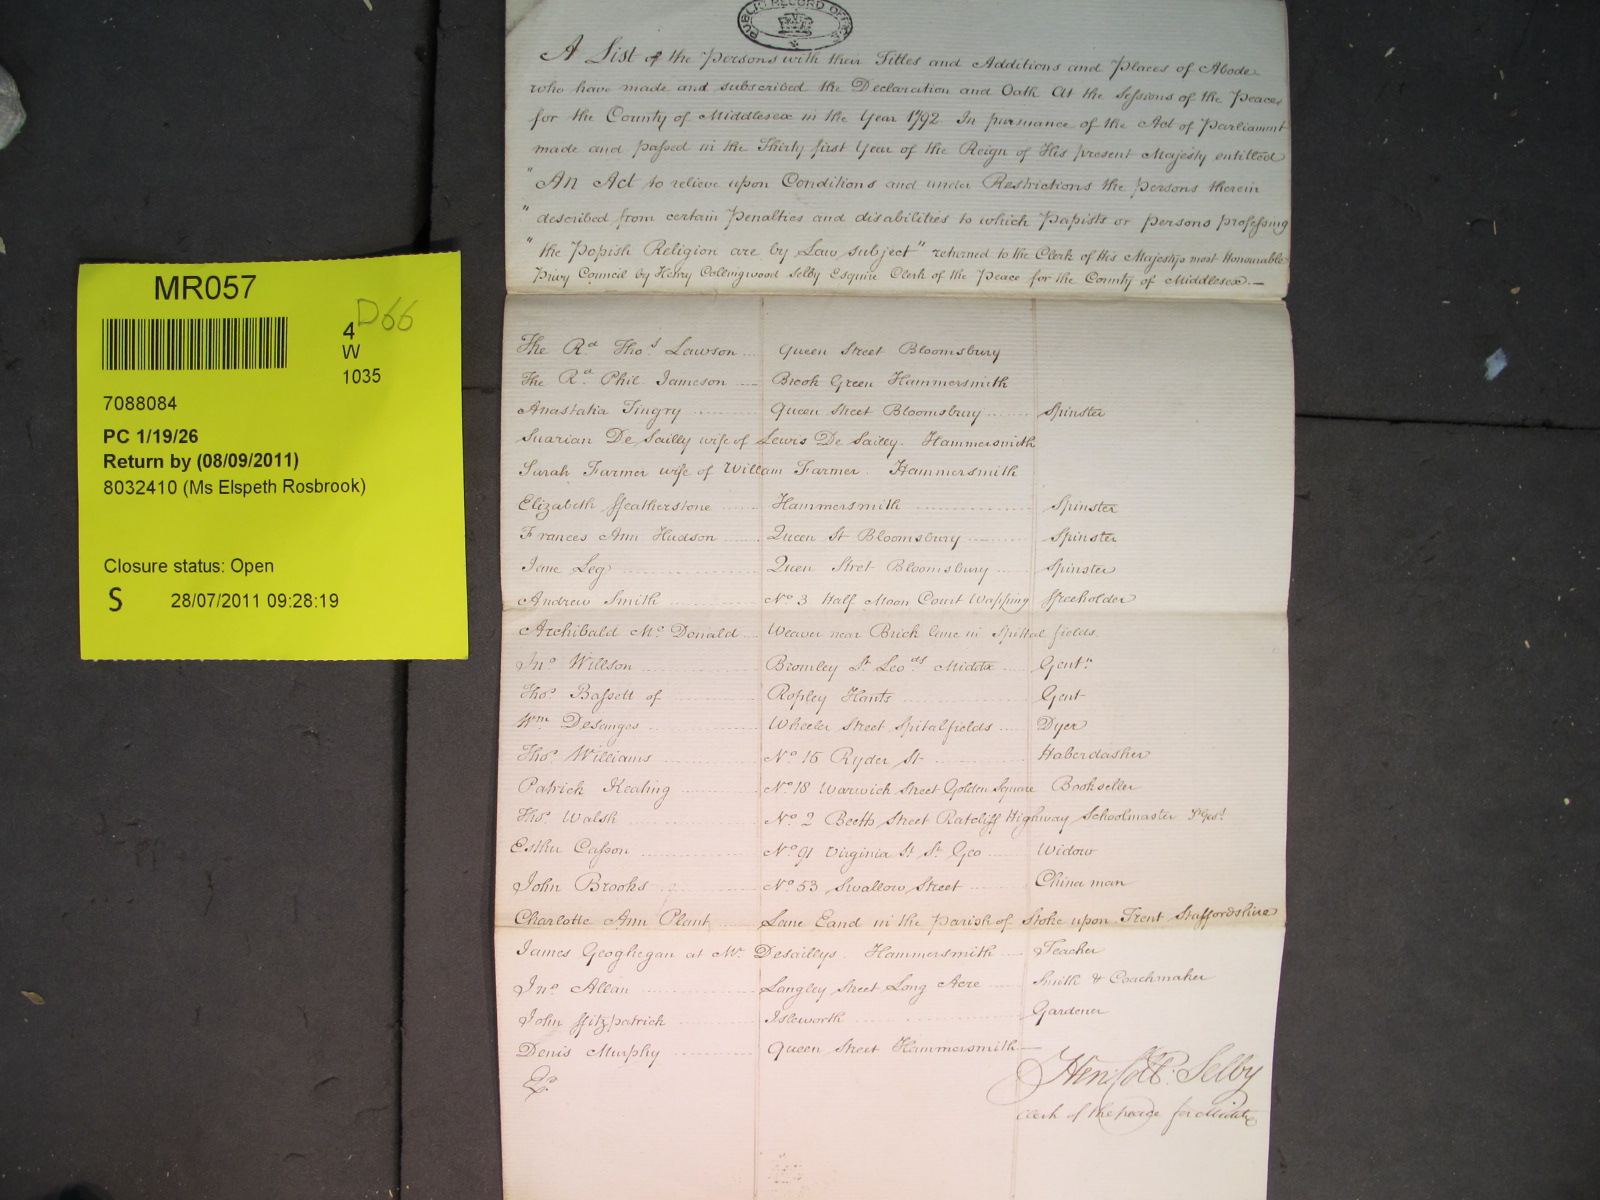 PUBLIC RECORD OFFICE
A List of the Persons with their Titles and Additions and Places of Abode
who have made and subscribed the Declaration and Oath At the Sessions of the Peace
for the County of Middlesex in the Year 1792 In pursuance of the Act of Parliament
made and passed in the Thirty first Year of the Reign of His present Majesty entitled
"An Act to relieve upon Conditions and under Restrictions the persons therein
"described from certain Penalties and disabilities to which Papists or persons professing
"the Popish Religion are by Law subject" returned to the Clerk of His Majestys most Honourable
Privy Council by Henry Collingwood Selby Esquire Clerk of the Peace for the County of Middlesex.—
The Rd Thos Lawson Queen Street Bloomsbury
The Rd Phil Jameson Brook Green Hammersmith
Anastatia Tingry Queen Street Bloomsbury Spinster
Suarian De Sailly wife of Lewis De Sailly. Hammersmith
Sarah Farmer wife of William Farmer. Hammersmith
Elizabeth ffeatherstone Hammersmith Spinster
Frances Ann Hudson Queen St Bloomsbury Spinster
Jane Leg Queen Stret Bloomsbury Spinster
Andrew Smith No 3 Half Moon Court Wapping ffreeholder
Archibald Mc Donald Weaver near Brick lane in Spittal fields.
Jno Willson Bromley St Leods Middx Gentn
Thos Bassett of Ropley Hants Gent
Wm Desanges Wheeler Street Spitalfields Dyer
Thos Williams No 15 Ryder St Haberdasher
Patrick Keating No 18 Warwick Street Golden Square Bookseller
Thos Walsh No 2 Betts Street Ratcliff Highway Schoolmaster
Esther Casson No 91 Virginia St St Geo Widow
John Brooks No 53 Swallow Street China man
Charlotte Ann Plant Lane Eand in the Parish of Stoke upon Trent Staffordshire
James Geoghegan at Mr Desaillys. Hammersmith Teacher
Jno Allan Langley Street Long Acre Smith & Coachmaker
John ffitzpatrick Isleworth Gardener
Denis Murphy Queen Street Hammersmith—
Henry Coll: Selby
Clerk of the peace for Middx
MR057
D66
4
W
1035
7088084
PC 1/19/26
Return by (08/09/2011)
8032410 (Ms Elspeth Rosbrook)
Closure status: Open
S 28/07/2011 09:28:19